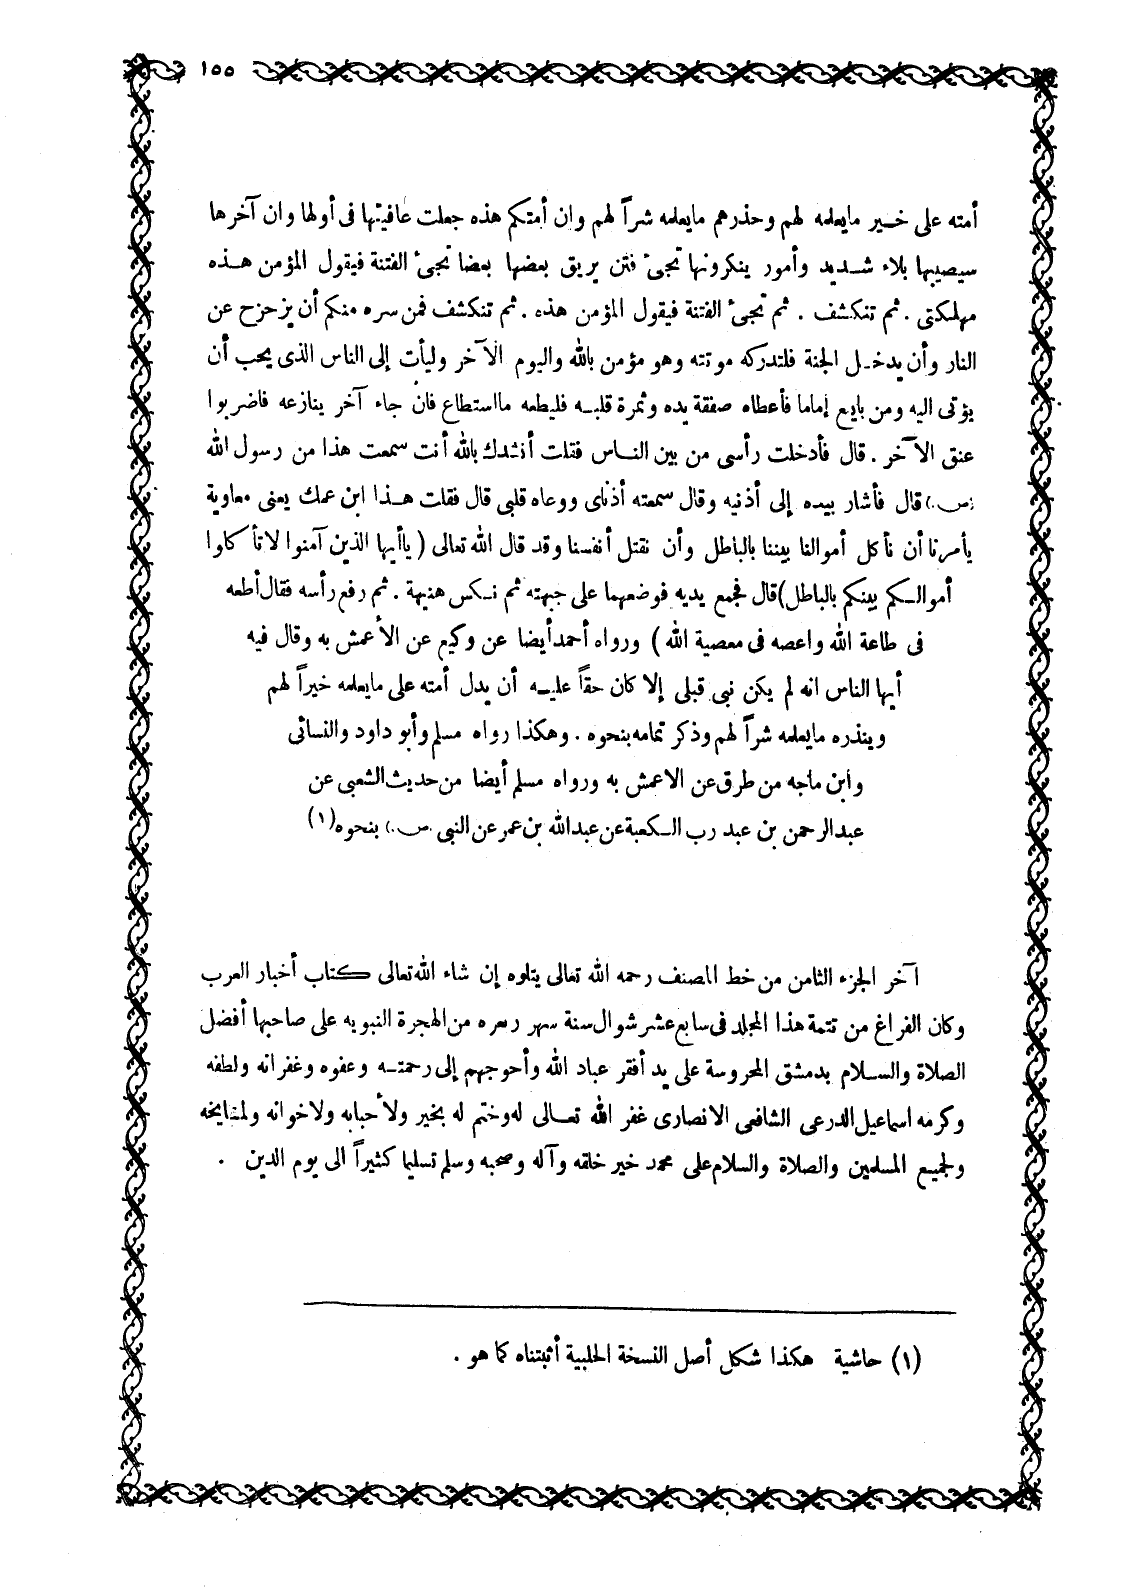 ١٥٥
أمته على خير مايعلمه لهم وحذرهم مايعلمه شراً لهم وان أمتكم هذه جعلت عافيتها فى أولها وان آخرها
سيصيبها بلاء شديد وأمور ينكرونها تجىء فتن يريق بعضها بعضا تجىء الفتنة فيقول المؤمن هذه
مهلكتى . ثم تنكشف . ثم تجىء الفتنة فيقول المؤمن هذه . ثم تنكشف فمن سره منكم أن يزحزح عن
النار وأن يدخل الجنة فلتدركه موتته وهو مؤمن بالله واليوم الآخر وليأت إلى الناس الذى يحب أن
يؤتى اليه ومن بايع إماما فأعطاه صفقة يده وثمرة قلبه فليطعه مااستطاع فان جاء آخر ينازعه فاضربوا
عنق الآخر . قال فأدخلت رأسى من بين الناس فقلت أنشدك بالله أنت سمعت هذا من رسول الله
(ص.) قال فأشار بيده إلى أذنيه وقال سمعته أذناى ووعاه قلبى قال فقلت هذا ابن عمك يعنى معاوية
يأمرنا أن نأكل أموالنا بيننا بالباطل وأن نقتل أنفسنا وقد قال الله تعالى ( ياأيها الذين آمنوا لاتأكلوا
أموالكم بينكم بالباطل) قال فجمع يديه فوضعهما على جبهته ثم نكس هنيهة . ثم رفع رأسه فقال أطعه
فى طاعة الله واعصه فى معصية الله ) ورواه أحمد أيضا عن وكيع عن الأعمش به وقال فيه
أيها الناس انه لم يكن نبى قبلى إلا كان حقاً عليه أن يدل أمته على مايعلمه خيراً لهم
وينذره مايعلمه شراً لهم وذكر تمامه بنحوه . وهكذا رواه مسلم وأبو داود والنسائى
وابن ماجه من طرق عن الاعمش به ورواه مسلم أيضا من حديث الشعبى عن
عبدالرحمن بن عبد رب الكعبة عن عبدالله بن عمر عن النبى (ص.) بنحوه (١)
آخر الجزء الثامن من خط المصنف رحمه الله تعالى يتلوه إن شاء الله تعالى كتاب أخبار العرب
وكان الفراغ من تتمة هذا المجلد فى سابع عشر شوال سنة من الهجرة النبويه على صاحبها أفضل
الصلاة والسلام بدمشق المحروسة على يد أفقر عباد الله وأحوجهم إلى رحمته وعفوه وغفرانه ولطفه
وكرمه اسماعيل الدرعى الشافعى الانصارى غفر الله تعالى له وختم له بخير ولأحبابه ولاخوانه ولمشايخه
ولجميع المسلمين والصلاة والسلام على محمد خير خلقه وآله وصحبه وسلم تسليما كثيراً الى يوم الدين .
(١) حاشية هكذا شكل أصل النسخة الحلبية أثبتناه كما هو .